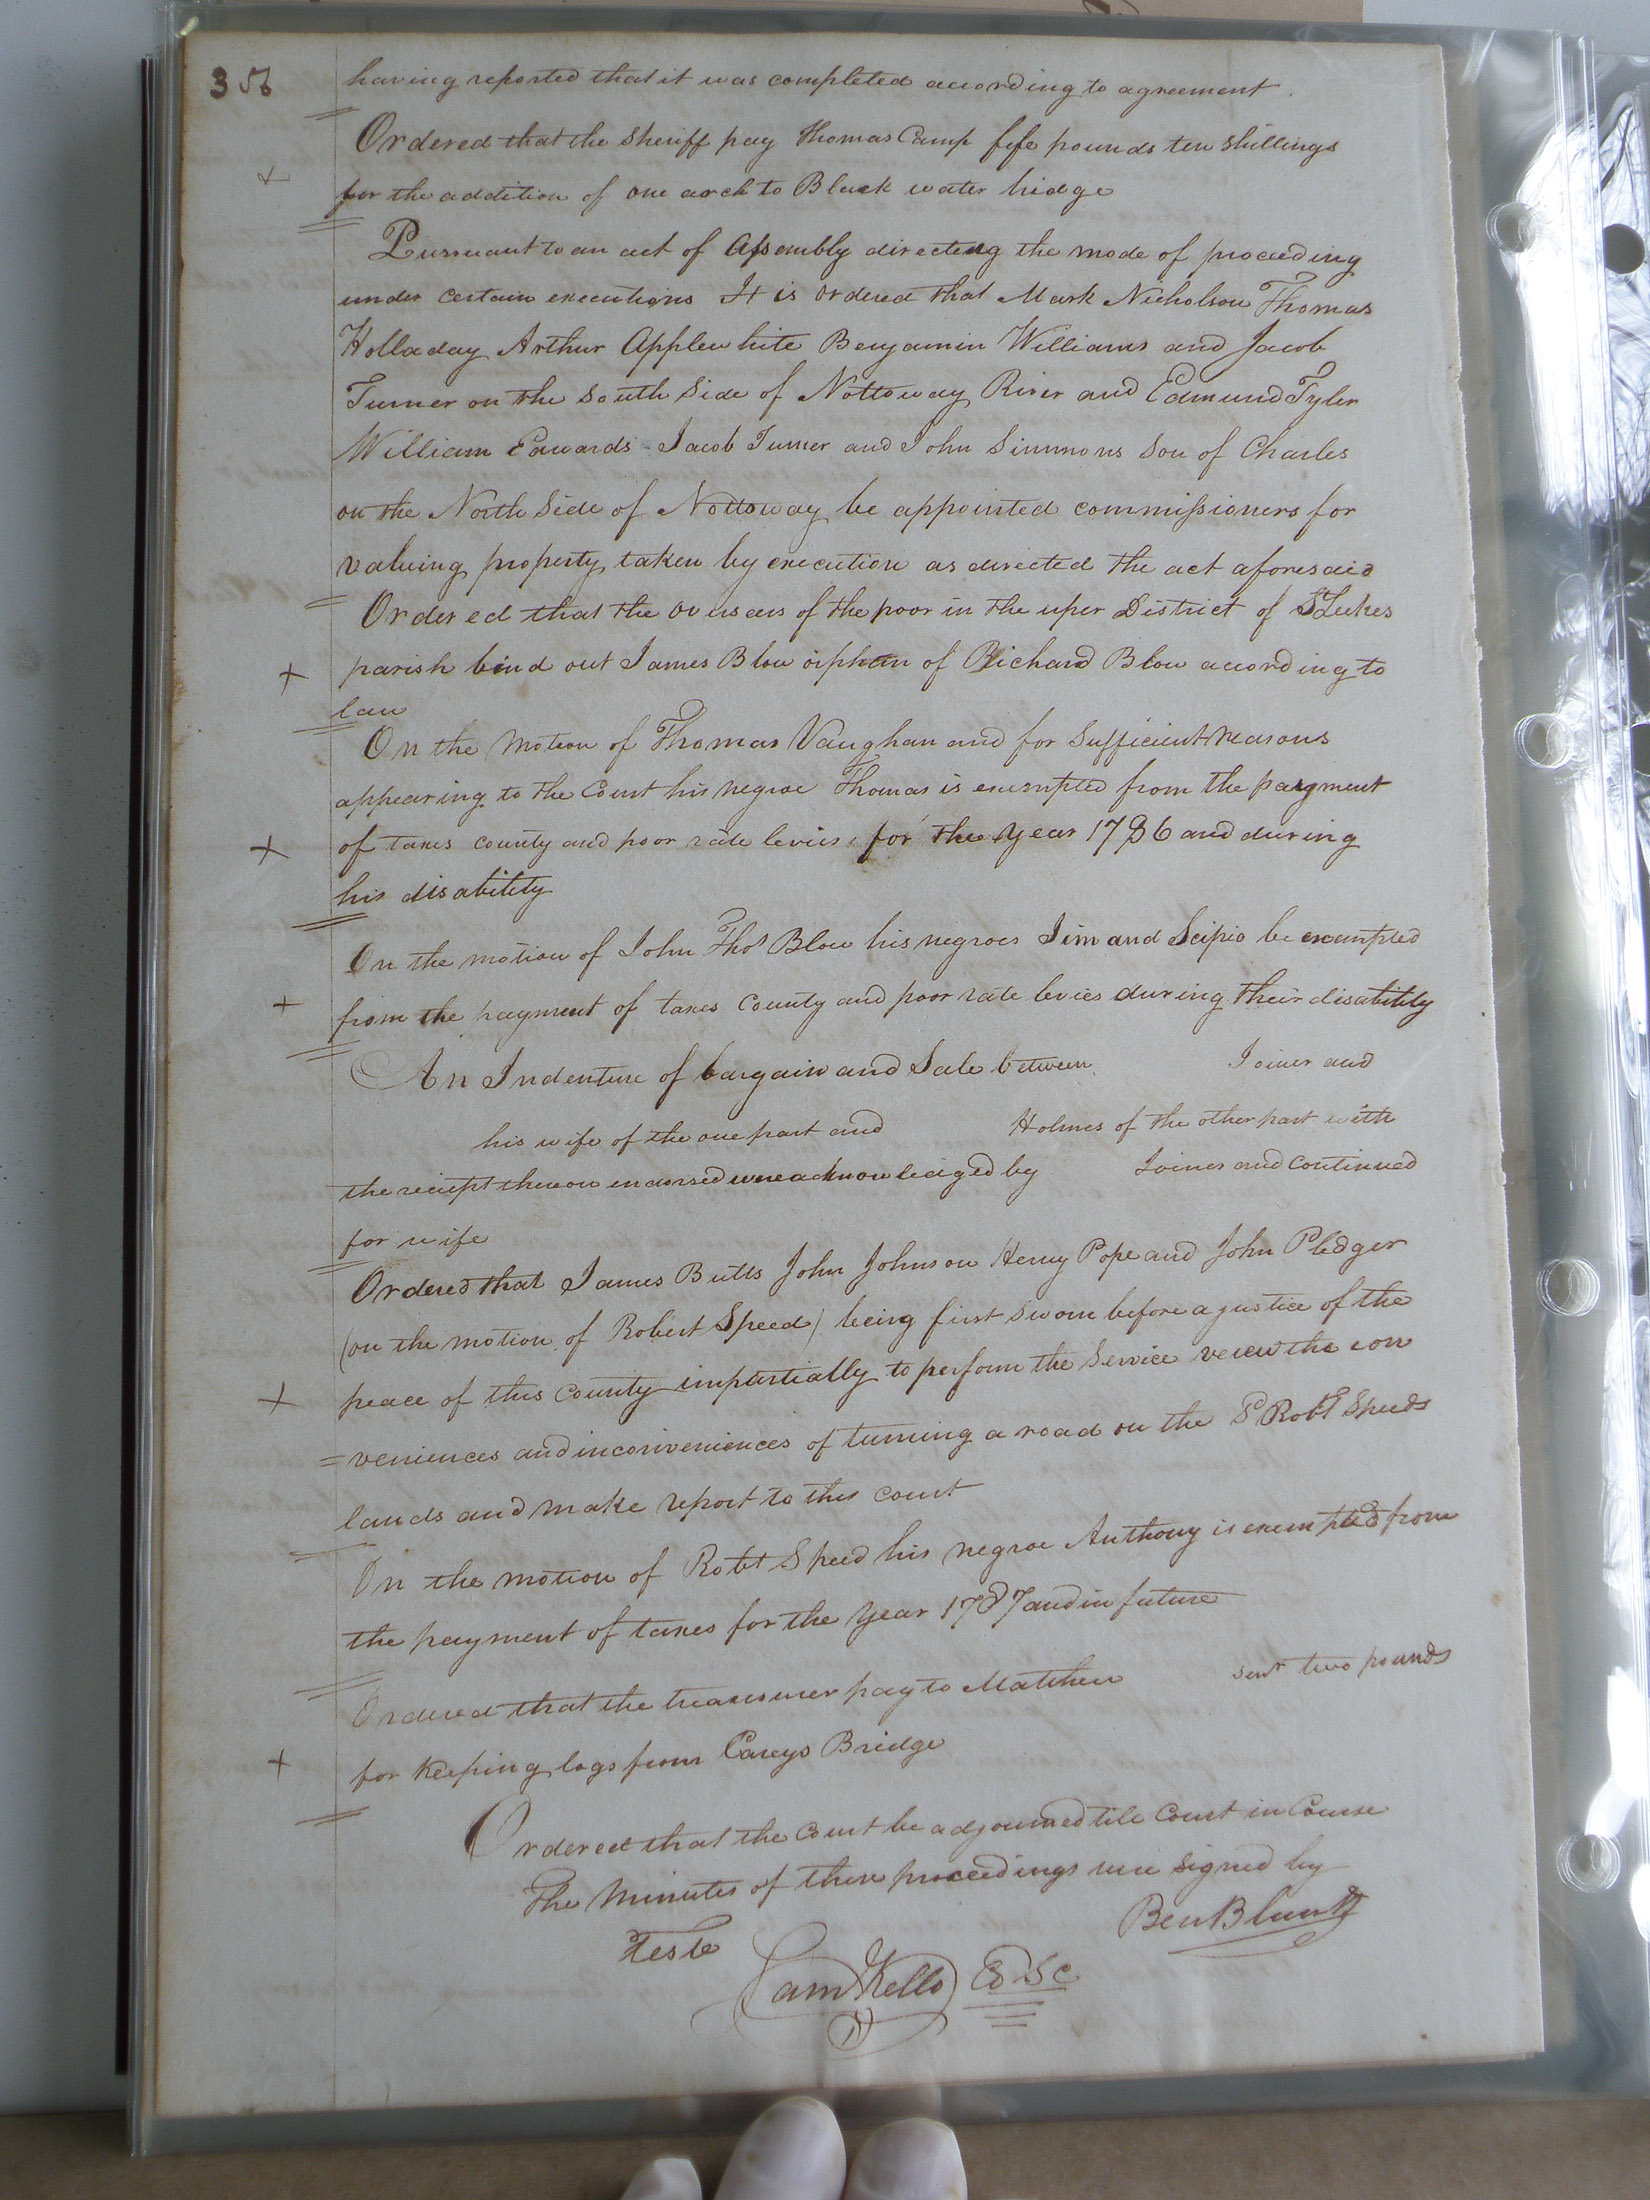 356
having reported that it was completed according to agreement.
Ordered that the Sheriff pay Thomas Camp fife pounds ten shillings
for the addition of one arch to Black water bridge
Pursuant to an act of Assembly directing the mode of proceeding
under certain executions It is ordered that Mark Nicholson Thomas
Holladay Arthur Applewhite Benjamin Williams and Jacob
Turner on the South Side of Nottoway River and Edmund Tyler
William Edwards Jacob Turner and John Simmons Son of Charles
on the North Side of Nottoway be appointed commissioners for
valuing property taken by execution as directed the act aforesaid
Ordered that the overseers of the poor in the uper District of St Lukes
parish bind out James Blow orphan of Richard Blow according to
law
On the Motion of Thomas Vaughan and for Sufficient reasons
appearing to the Court his negroe Thomas is exempted from the payment
of taxes county and poor rate levies for the Year 1786 and during
his disability
On the motion of John Thos Blow his negroes Jim and Scipio be exempted
from the payment of taxes County and poor rate levies during their disability
An Indenture of bargain and Sale between Joiner and
his wife of the one part and Holmes of the other part with
the reciept thereon endorsed were acknowledged by Joiner and Continued
for wife
Ordered that James Butts John Johnson Henry Pope and John Pledger
(on the motion of Robert Speed) being first sworn before a justice of the
peace of this County impartially to perform the Service veiew the con
=veniences and inconveniences of turning a road on the Sd Robt Speeds
lands and make report to this court
On the motion of Robt Speed his negroe Anthony is exempted from
the payment of taxes for the Year 1787 and in future
Ordered that the treasurer pay to Matthew senr two pounds
for keeping logs from Careys Bridge
Ordered that the Court be adjourned till Court in Course
The Minutes of these proceedings were signed by
Ben Blunt
Teste
Sam Kello Cl SC